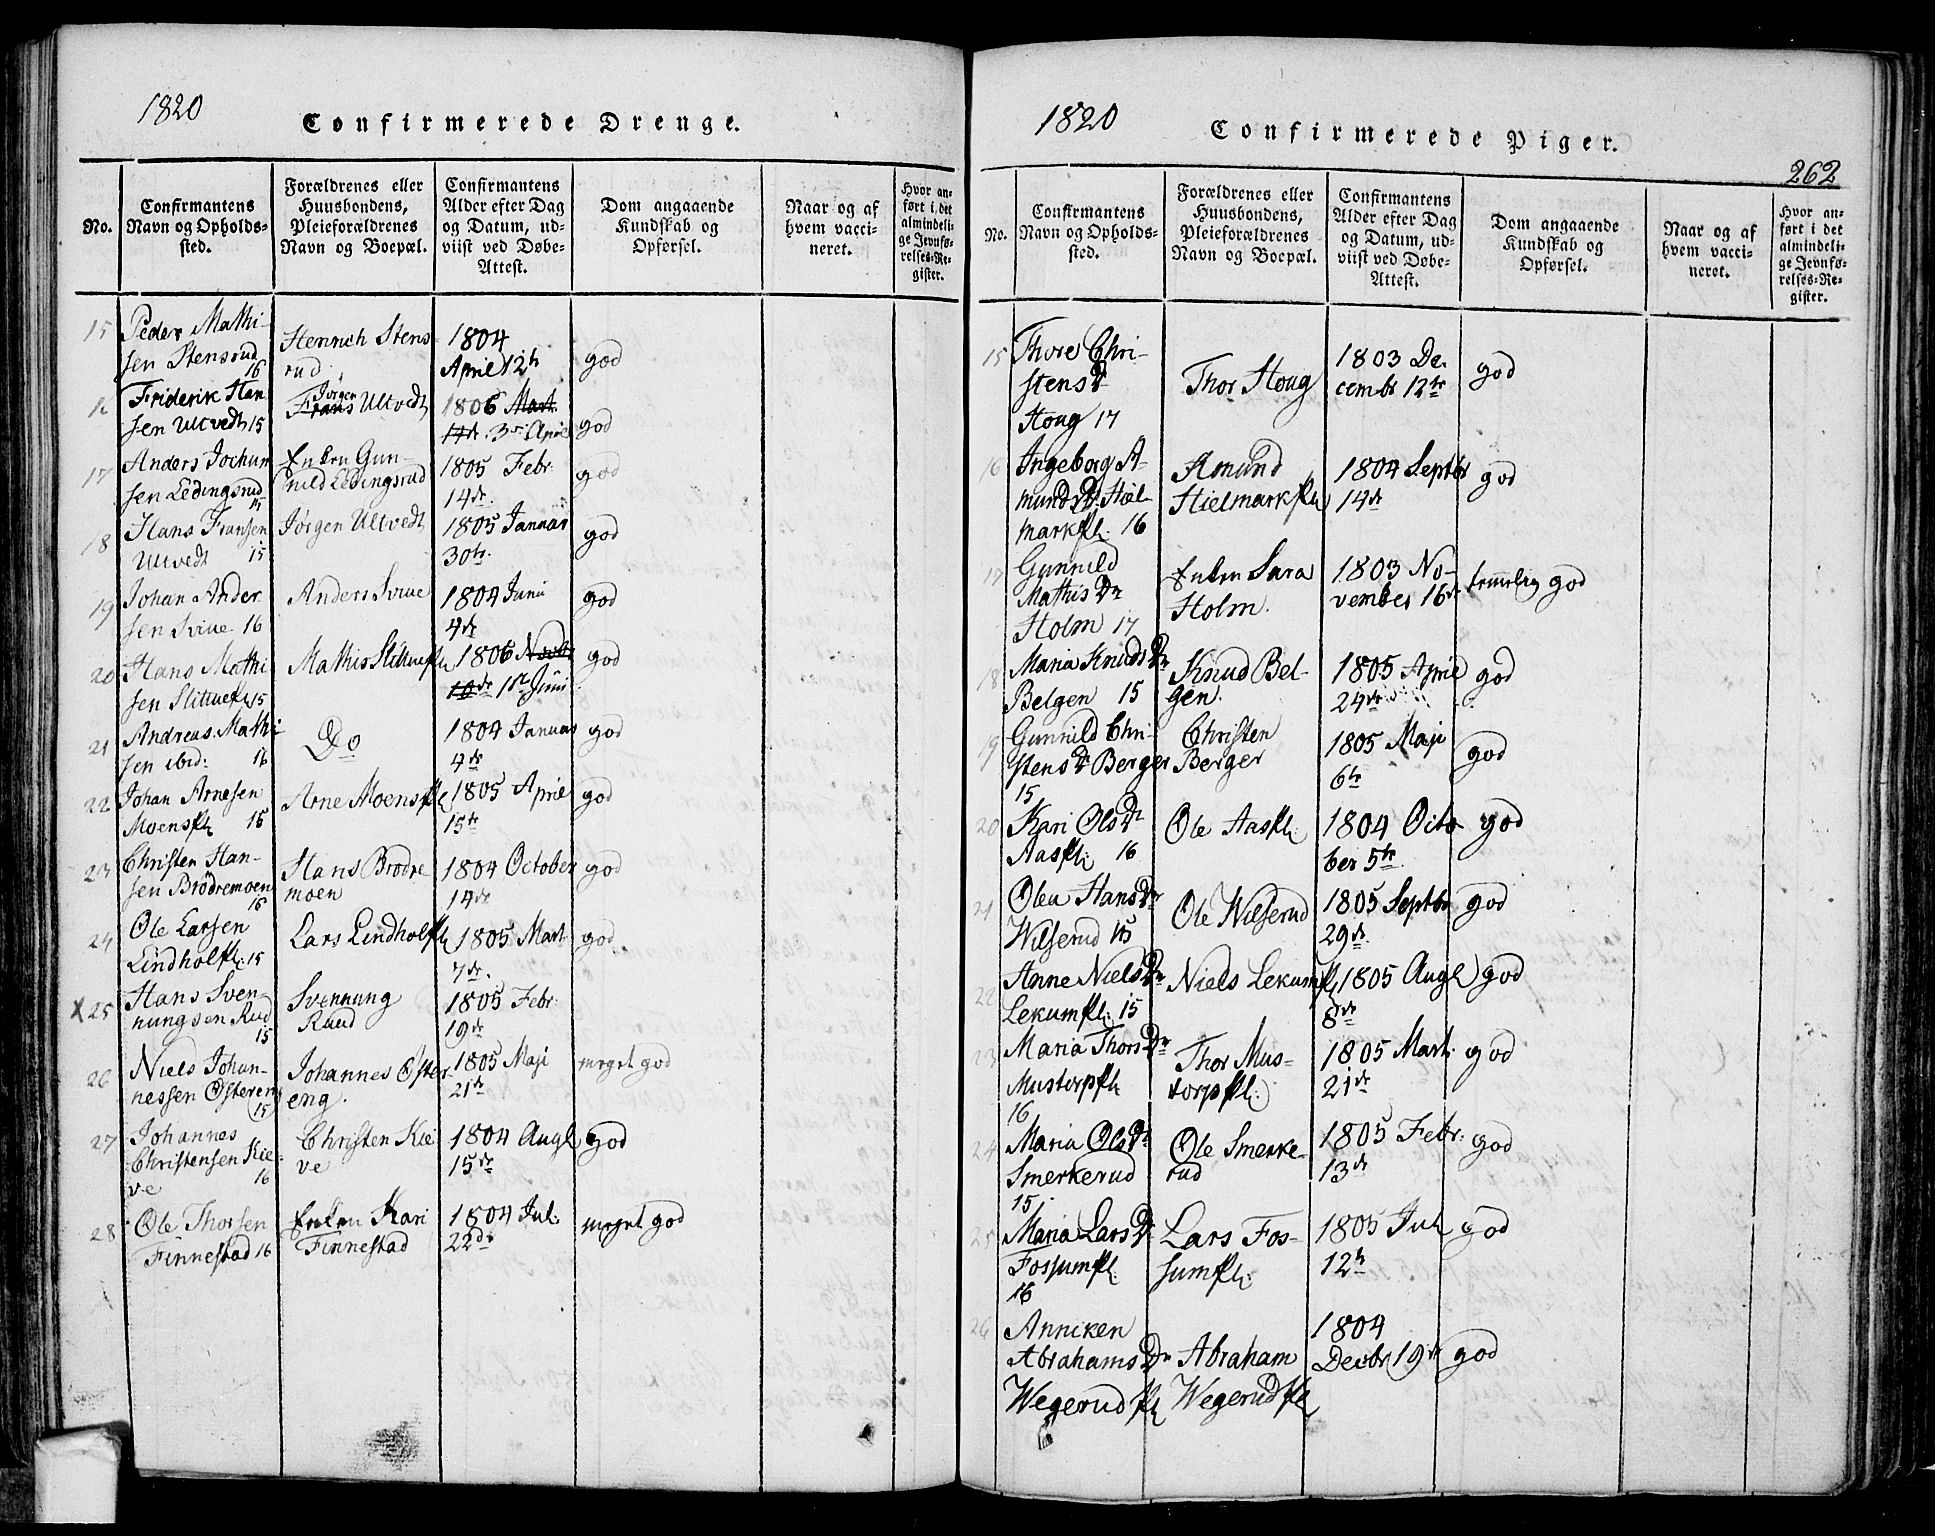 1820
Confirmerede Drenge.
No.
Confirmantens
Navn og Opholds-
sted.
Forældrenes eller
Huusbondens,
Pleieforældrenes
Navn og Boepæl.
Confirmantens
Alder efter Dag
og Datum, ud-
viist ved Døbe-
Attest.
Dom angaaende
Kundskab og
Opførsel.
Naar og af
hvem vacci-
neret.
Hvor an-
ført i det
almindeli-
ge Jevnfø-
relses-Re-
gister.
15
Peder Mathi-
sen Stensrud
16
Henrich Stens-
rud
1804
April 12te
god
16
Friderik Han-
sen Ultvedt 15
Jørgen
Frans Ultvedt
1806 Mart.
14de 3die April
god
17
Anders Jochum
sen Ledingsrud
15
Enken Gun-
nild Ledingsrud
1805 Febr.
14de
god
18
Hans Fransen
Ultvedt 15
Jørgen Ultvedt
1805 Januar
30te
god
19
Johan Ander
sen Sviue 16
Anders Sviue
1804 Junii
4de
god
20
Hans Mathi
sen Slittuefl 15
Mathis Slittuefl
1806 Novbr
10de 1ste Junii
god
21
Andreas Mathi
sen ibid: 16
Do
1804 Januar
4de
god
22
Johan Arnesen
Moensfl 15
Arne Moensfl
1805 April
15te
god
23
Christen Han-
sen Brödremoen
16
Hans Brödre
moen
1804 October
14de
god
24
Ole Larsen
Lindholfl: 15
Lars Lindholfl
1805 Mart
7de
god
x 25
Hans Sven-
nungsen Rud
15
Svennung
Ruud
1805 Febr:
19de
god
26
Niels Johan-
nessen Østereng
15
Johannes Øster-
eng.
1805 Maji
21de
meget god
27
Johannes
Christensen Kie-
ve 16
Christen Kie
ve
1804 Augl
15de
god
28
Ole Thorsen
Finnestad 16
Enken Kari
Finnestad
1804 Jul:
22de
meget god
1820
Confirmerede Piger.
262
No.
Confirmantens
Navn og Opholds-
sted.
Forældrenes eller
Huusbondens,
Pleieforældrenes
Navn og Boepæl.
Confirmantens
Alder efter Dag
og Datum, ud-
viist ved Døbe-
Attest.
Dom angaaende
Kundskab og
Opførsel.
Naar og af
hvem vacci-
neret.
Hvor an-
ført i det
almindeli-
ge Jevnfø-
relses-Re-
gister.
15
Thore Chri-
stensDr
Houg 17
Thor Houg
1803 De-
cembr 12te
god
16
Ingeborg A-
mundsDr Hiel-
markfl: 16
Amund
Hielmarkfl
1804 Septbr
14de
god
17
Gunnild
MathisDr
Holm 17
Enken Sara
Holm.
1803 No-
vember 16de
temmelig god
18
Maria KnudsDr
Belgen 15
Knud Bel-
gen.
1805 April
24de
god
19
Gunnild Chri-
stensDr Berger
15
Christen
Berger
1805 Maji
6te
god
20
Kari OlsDr
Aasfl: 16
Ole Aasfl:
1804 Octo-
ber 5te
god
21
Oleu HansDr
Wilserud 15
Ole Wilserud
1805 Septbr
29de
god
22
Anne NielsDr
Lekumfl: 15
Niels Lekumfl
1805 Augl
8de
god
23
Maria ThorsDr
Mustorpfl
16
Thor Mus-
torpfl:
1805 Mart:
21de
god
24
Maria OlsDr
Smerkerud
15
Ole Smerke-
rud
1805 Febr:
13de
god
25
Maria LarsDr
Fossumfl:
16
Lars Fos-
sumfl:
1805 Jul
12te
god
26
Anniken
AbrahamsDr
Wegerudfl
Abraham
Wegerudfl
1804
Decbr 19de
god